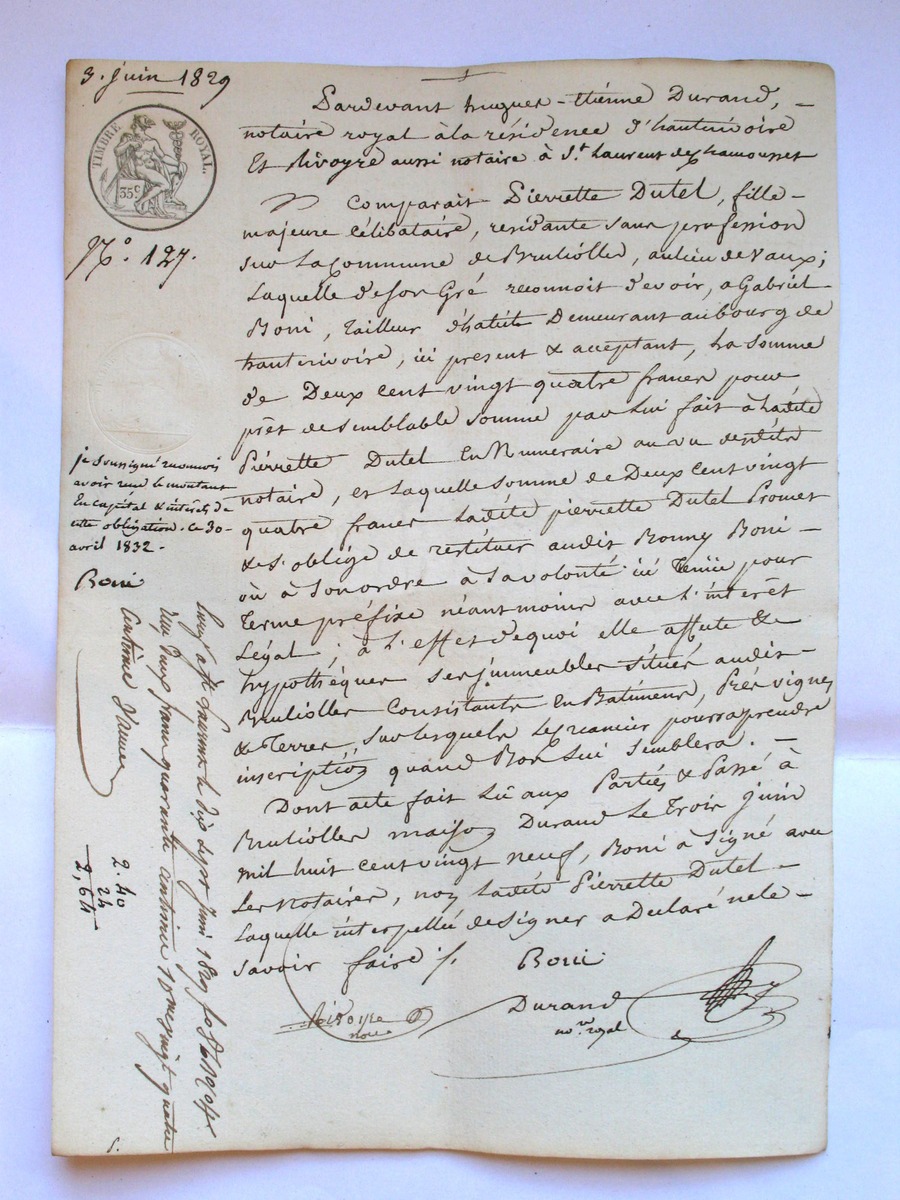 3. juin 1829
TIMBRE ROYAL.
35 C.
N.º 127.
Pardevant hugues-Etienne Durand,
notaire royal à la résidence d'hauterivoire
Et Rivoyre aussi notaire à S.t Laurent de chamousset
Comparait Pierrette Dutel, fille
majeure célibataire, résidante sans profession
sur la Commune de Brulioller, au lieu de Vaux;
Laquelle de son Gré reconnoit devoir, a Gabriel
Boni, tailleur d'habits Demeurant au bourg de
hauterivoire, ici présent & acceptant, la somme
de Deux cent vingt quatre francs pour
prêt de semblable somme par lui fait à ladite
Pierrette Dutel En Numeraire au vu desdits
notaire, et laquelle somme de Deux cent vingt
quatre francs ladite pierrette Dutel Promet
& s'oblige de restituer audit Boni
où à son ordre à sa volonté ici tenüe pour
terme préfixe néantmoins avec l'intérêt
Légal; à l'effet de quoi elle affecte &
hypothéque ses jmmeubles situés audit
Brulioller Consistants En Batimens, Prés vignes
& Terres, sur lesquels le créancier pourra prendre
inscription quand Bon lui semblera.
Dont acte fait Lû aux Parties & Passé à
Brulioller maison Durand Le Trois juin
mil huit cent vingt neuf, Boni à Signé avec
les notaires, non ladite Pierrette Dutel
Laquelle interpellée de signer a Declaré ne le
savoir faire ./.
Boni
Rivoyre
no.re
Durand
no.re royal
je soussigné reconnois
avoir reçu le montant
En capital & intérêts de
cette obligation. ce 30
avril 1832.
Boni
juin 1829
deux francs quarante centimes vingt quatre
centimes
2. 40
24
2, 64